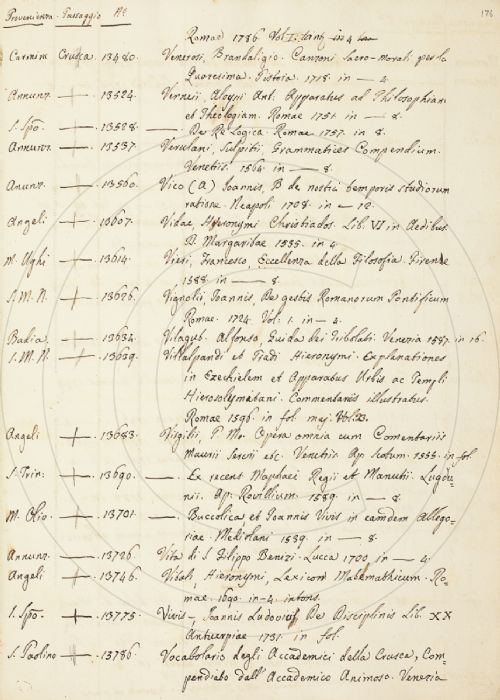 Provenienza. Passaggio. N.º
176
Romae 1786 Vol. I. in 4
Carmin Crusca. 13480. Venerosi, Brandaligio. Canzoni Sacro-morali per la
Quaresima. Pistoia. 1718. in — 4.
Annunz. 13524. Verneii, Aloysii Ant. Apparatus ad Philosophiam
et Theologiam. Romae 1751. in — 8.
S. Spo. 13528. — De Re Logica. Romae 1757. in 8.
Annunz. 13537. Verulani, Sulpitii, Grammatices Compendium.
Venetiis. 1564. in — 8.
Anunz. 13560. Vico (A) Joannis, B. de nostri temporis studiorum
ratione. Neapoli 1708. in — 12.
Angeli 13607. Vidae, Hyeronymi Christiados. Lib. VI in Aedibus
D. Margaritae 1535. in 4.
M. Ughi 13614. Vieri, Francesco, Eccellenza della Filosofia. Firenze
1588. in — 8.
S. M. N. 13626. Vignolii, Joannis, De gestis Romanorum Pontificum
Romae. 1724. Vol. 1. in — 4.
Badia. 13634. Vilagut. Alfonso, Guida dei Tribolati. Venezia 1587. in 16.
S. M. N. 13639. Villalpandi et Pradi Hieronymi. Explanationes
in Ezechielem et Apparatus Urbis ac Templi
Hierosolymitani. Commentariis illustratus.
Romae 1596. in fol. maj. Vol.
Angeli 13683. Virgilii, P. Mr. Opera omnia cum Comentariis
Maurii Servii etc. Venetiis. Ap. Scotum. 1555. in fol.
S. Trin. 13690. — Ex recens. Maphaei Regii et Manutii. Lugdu-
nii. Ap. Rovillium. 1589. in — 8.
M. Olio. 13701. — Buccolica, et Joannis Vivis in eamdem Allego-
riae. Mediolani 1539. in — 8.
Annunz. 13726. Vita di S. Filippo Benizi. Lucca 1700. in — 4.
Angeli 13746. Vitali, Hieronymi, Lexicon Mathemathicum. Ro-
mae. 1690. in - 4. intons.
S. Spo. 13775. Vivis - Joannis Ludovici, De Disciplinis Lib. XX
Antverpiae - 1531. in fol.
S. Paolino 13786. Vocabolario degli Accademici della Crusca, Com-
pendiato dall' Accademico Animoso. Venezia